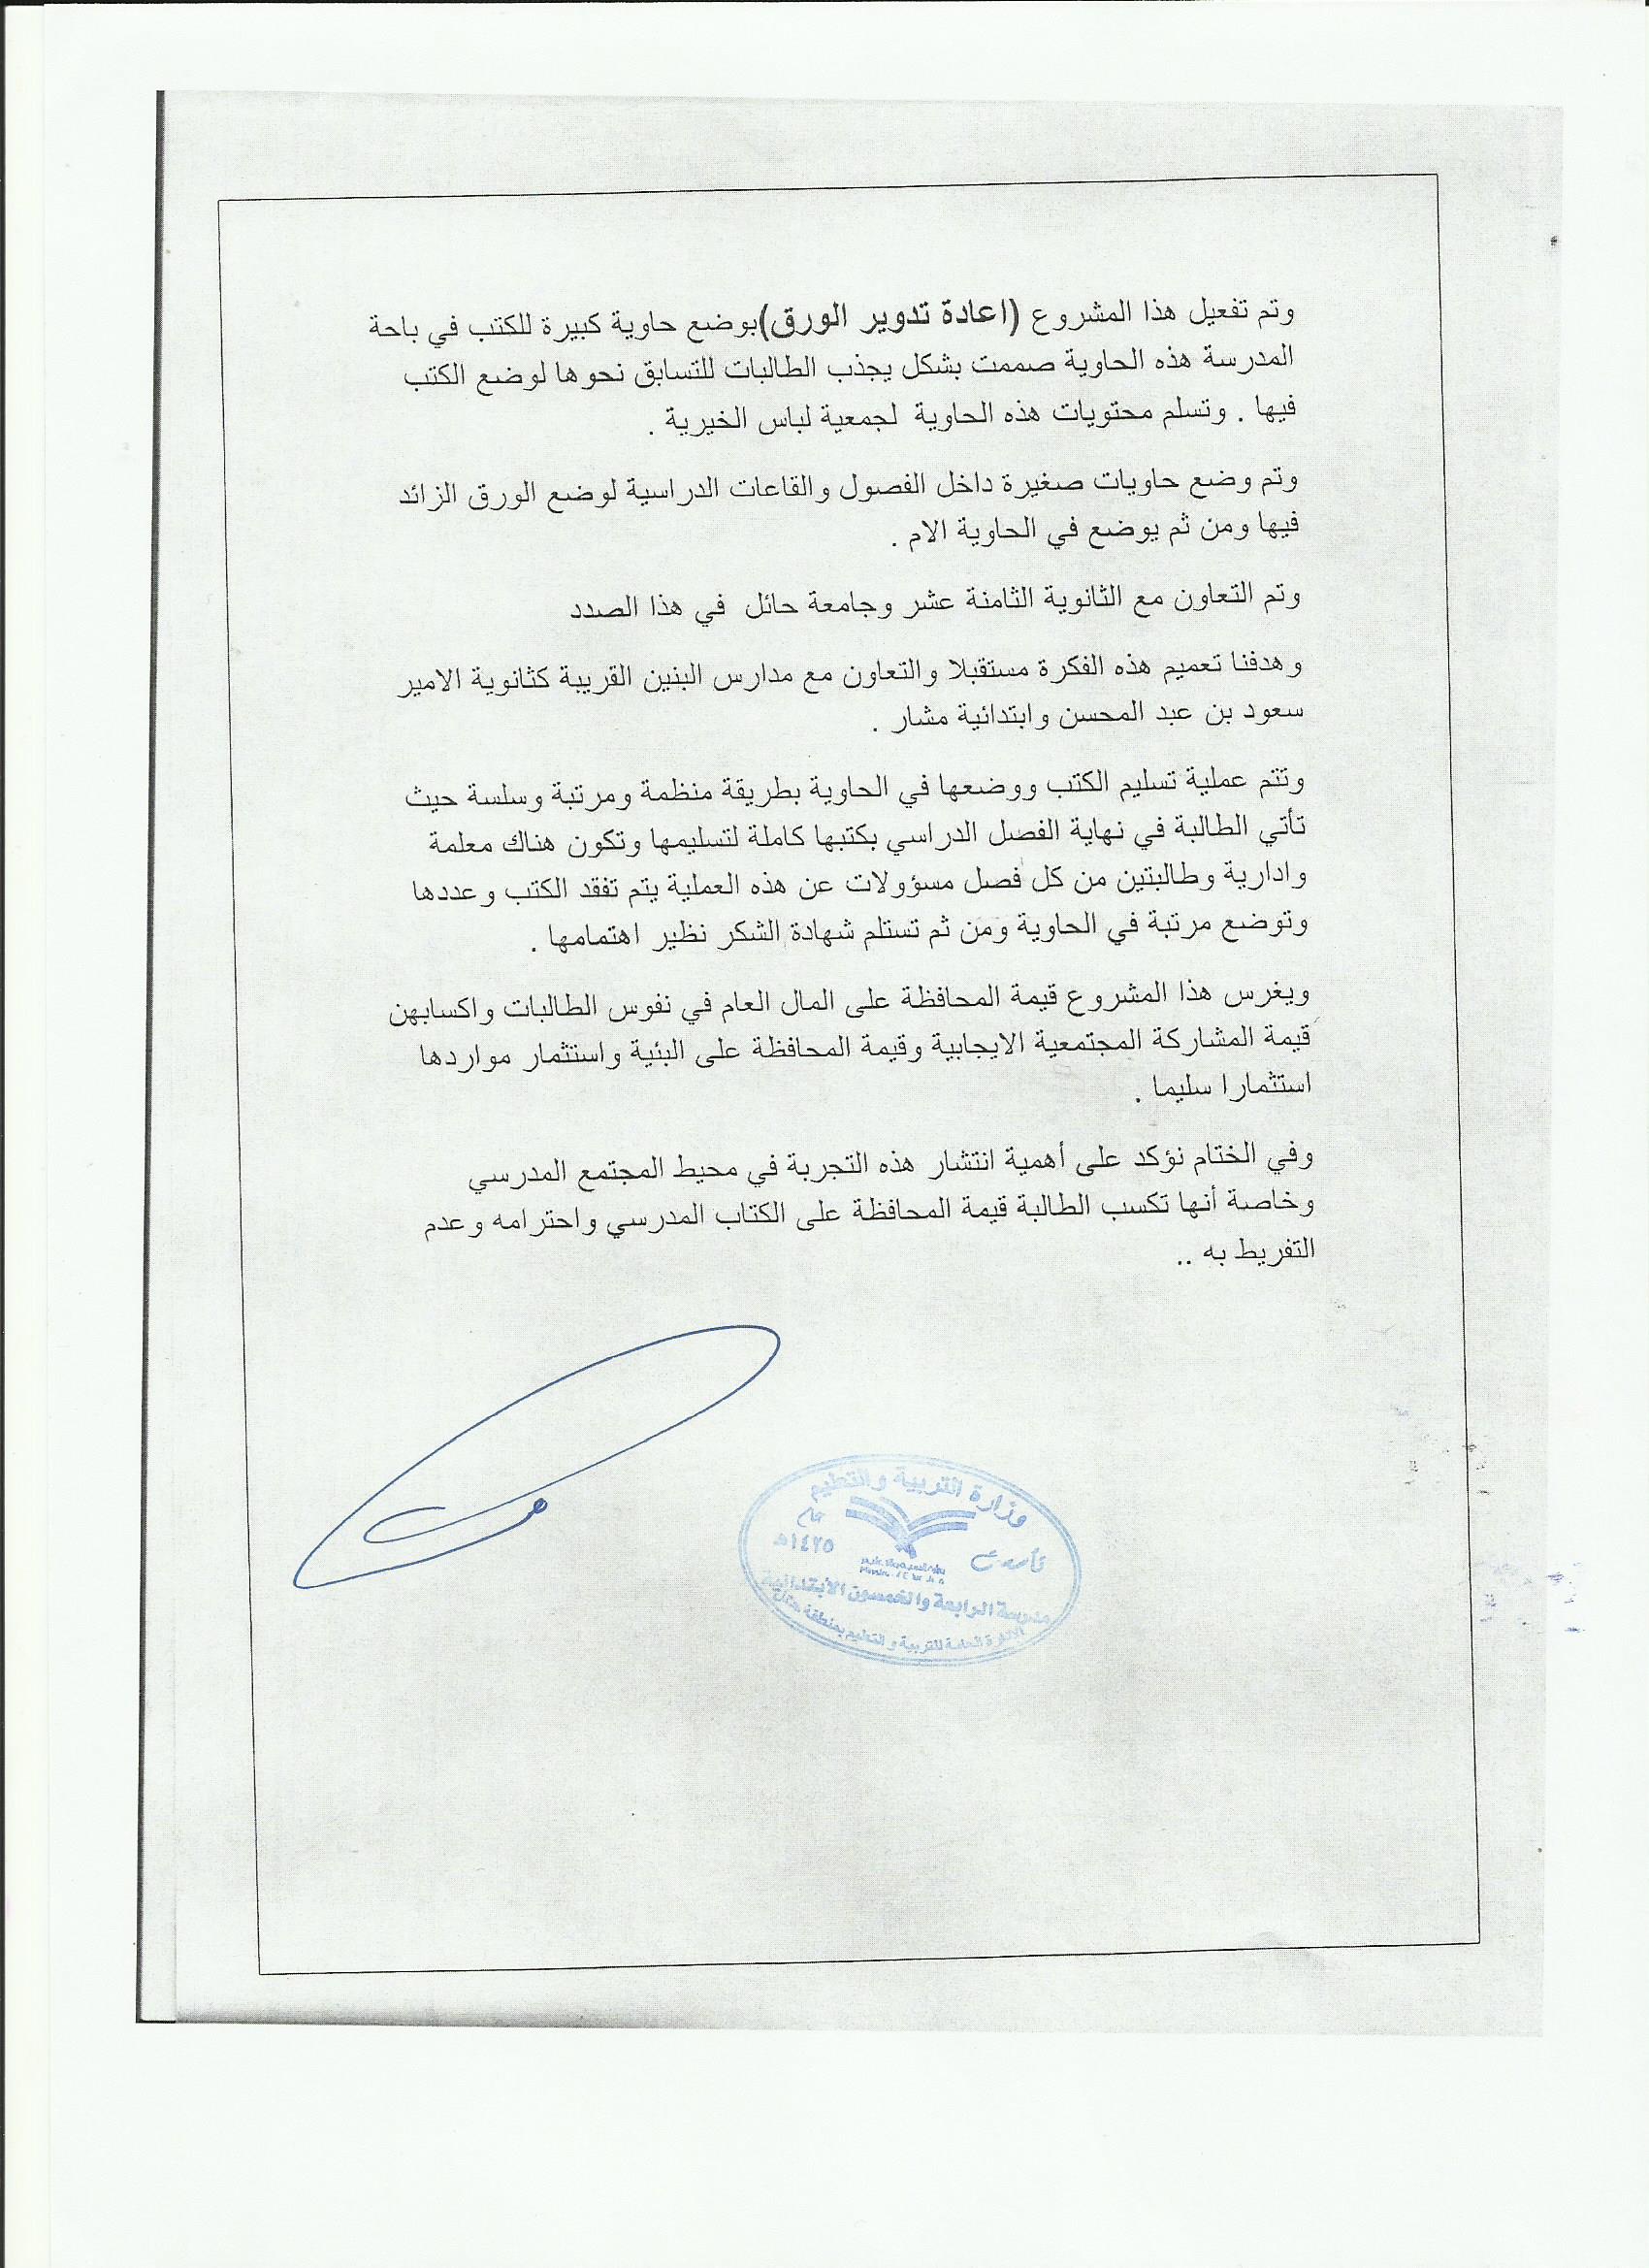 وتم تفعيل هذا المشروع (اعادة تدوير الورق)بوضع حاوية كبيرة للكتب في باحة
المدرسة هذه الحاوية صممت بشكل يجذب الطالبات للتسابق نحوها لوضع الكتب
فيها . وتسلم محتويات هذه الحاوية لجمعية لباس الخيرية .
وتم وضع حاويات صغيرة داخل الفصول والقاعات الدراسية لوضع الورق الزائد
فيها ومن ثم يوضع في الحاوية الام .
وتم التعاون مع الثانوية الثامنة عشر وجامعة حائل في هذا الصدد
وهدفنا تعميم هذه الفكرة مستقبلا والتعاون مع مدارس البنين القريبة كثانوية الامير
سعود بن عبد المحسن وابتدائية مشار .
وتتم عملية تسليم الكتب ووضعها في الحاوية بطريقة منظمة ومرتبة وسلسة حيث
تأتي الطالبة في نهاية الفصل الدراسي بكتبها كاملة لتسليمها وتكون هناك معلمة
وادارية وطالبتين من كل فصل مسؤولات عن هذه العملية يتم تفقد الكتب وعددها
وتوضع مرتبة في الحاوية ومن ثم تستلم شهادة الشكر نظير اهتمامها .
ويغرس هذا المشروع قيمة المحافظة على المال العام في نفوس الطالبات واكسابهن
قيمة المشاركة المجتمعية الايجابية وقيمة المحافظة على البئية واستثمار مواردها
استثمارا سليما .
وفي الختام نؤكد على أهمية انتشار هذه التجربة في محيط المجتمع المدرسي
وخاصة أنها تكسب الطالبة قيمة المحافظة على الكتاب المدرسي واحترامه وعدم
التفريط به ..
وزارة التربية والتعليم
عام
١٤٢٥هـ
مدرسة الرابعة والخمسون الابتدائية
الادارة العامة للتربية و التعليم بمنطقة حائل